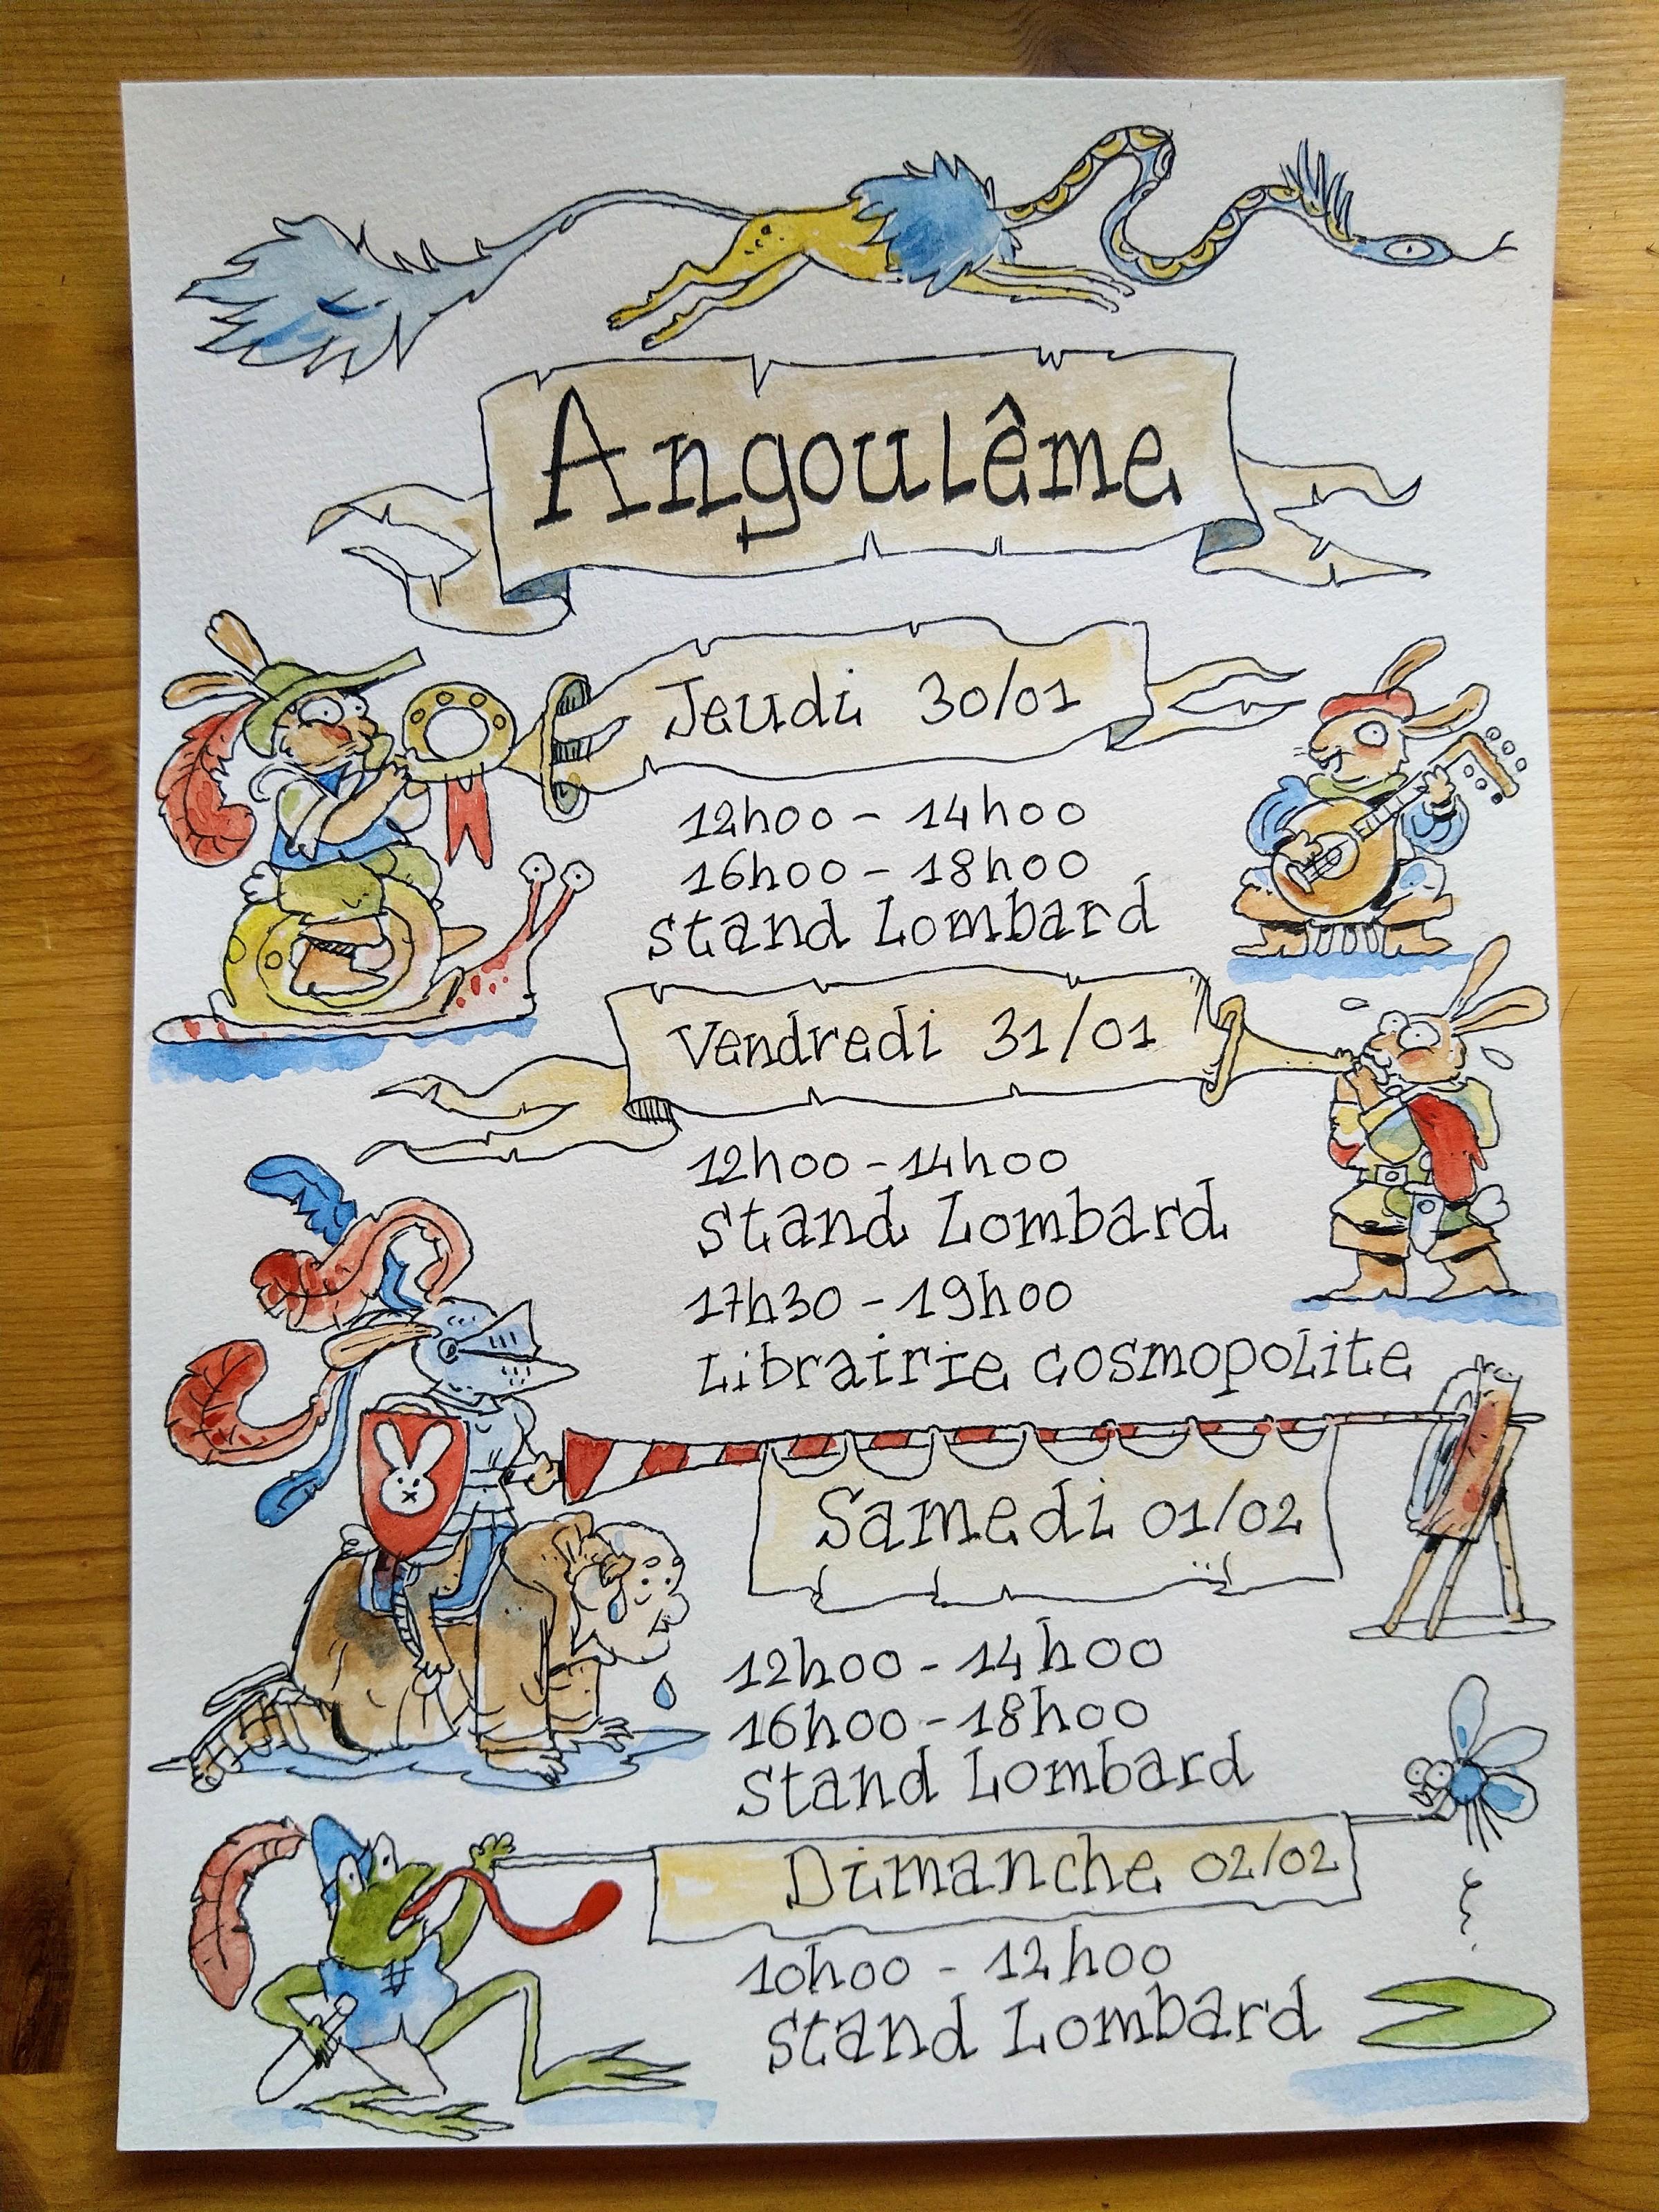 Angoulême
Jeudi 30/01
12h00 - 14h00
16h00 - 18h00
Stand Lombard
Vendredi 31/01
12h00 - 14h00
Stand Lombard
17h30 - 19h00
Librairie Cosmopolite
Samedi 01/02
12h00 - 14h00
16h00 - 18h00
Stand Lombard
Dimanche 02/02
10h00 - 12h00
Stand Lombard